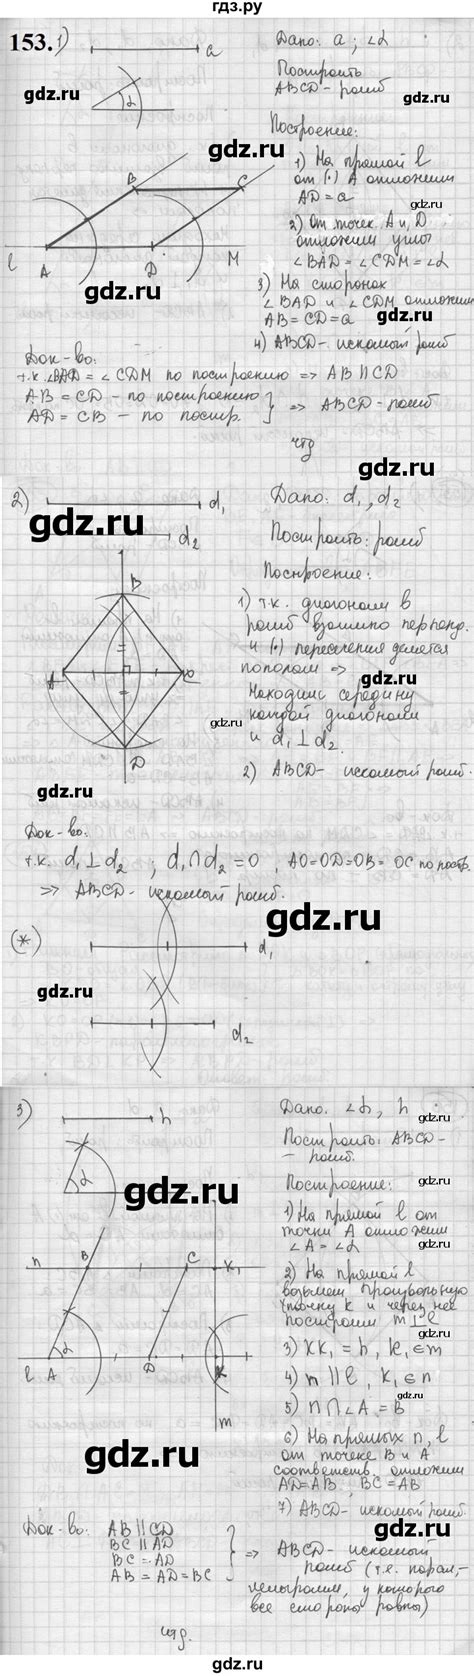 гдз.ру
153. 1) a
Дано: a ; ∠α
α
Построить
ABCD - ромб
gdz.ru
gdz.ru
Построение:
1) На прямой l
от (•) A отложим
AD = a
B C
2) От точек A и D
отложим углы
∠BAD = ∠CDM = ∠α
l A D M
gdz.ru
gdz.ru
3) На сторонах
∠BAD и ∠CDM отложим
AB = CD = a
4) ABCD - искомый ромб
Док-во:
т.к. ∠BAD = ∠CDM по построению => AB ∥ CD
AB = CD - по построению
AD = CB - по постр.
} => ABCD - ромб
чтд
gdz.ru
2) d1
d2
Дано: d1, d2
gdz.ru
Построить: ромб
gdz.ru
Построение:
B
1) т.к. диагонали в
ромб взаимно перпенд.
и (•) пересечения делятся
пополам =>
A C
Находим середину
каждой диагонали
и d1 ⊥ d2.
gdz.ru
D
gdz.ru
2) ABCD - искомый ромб.
Док-во:
gdz.ru
т.к. d1 ⊥ d2 ; d1 ∩ d2 = O , AO = OD = OB = OC по постр.
=> ABCD - искомый ромб.
gdz.ru
(*)
d1
gdz.ru
d2
gdz.ru
3) h
Дано: ∠α, h
gdz.ru
Построить: ABCD -
- ромб.
α
gdz.ru
Построение:
gdz.ru
1) На прямой l от
точки A отложим
∠A = ∠α
n B C K1
2) На прямой l
возьмем произвольную
точку K и через неё
построим m ⊥ l
α
l A D K
3) KK1 = h, K1 ∈ m
4) n ∥ l, K1 ∈ n
gdz.ru
m
5) n ∩ ∠A = B
gdz.ru
6) На прямых n, l
от точек B и A
соответств. отложим
AD = AB, BC = AB
7) ABCD - искомый ромб.
Док-во: AB ∥ CD
BC ∥ AD
BC = AD
AB = AD = BC
} => ABCD - искомый
ромб (т.е. парал-
лелограмм, у которого
все стороны равны)
gdz.ru
чтд.
gdz.ru